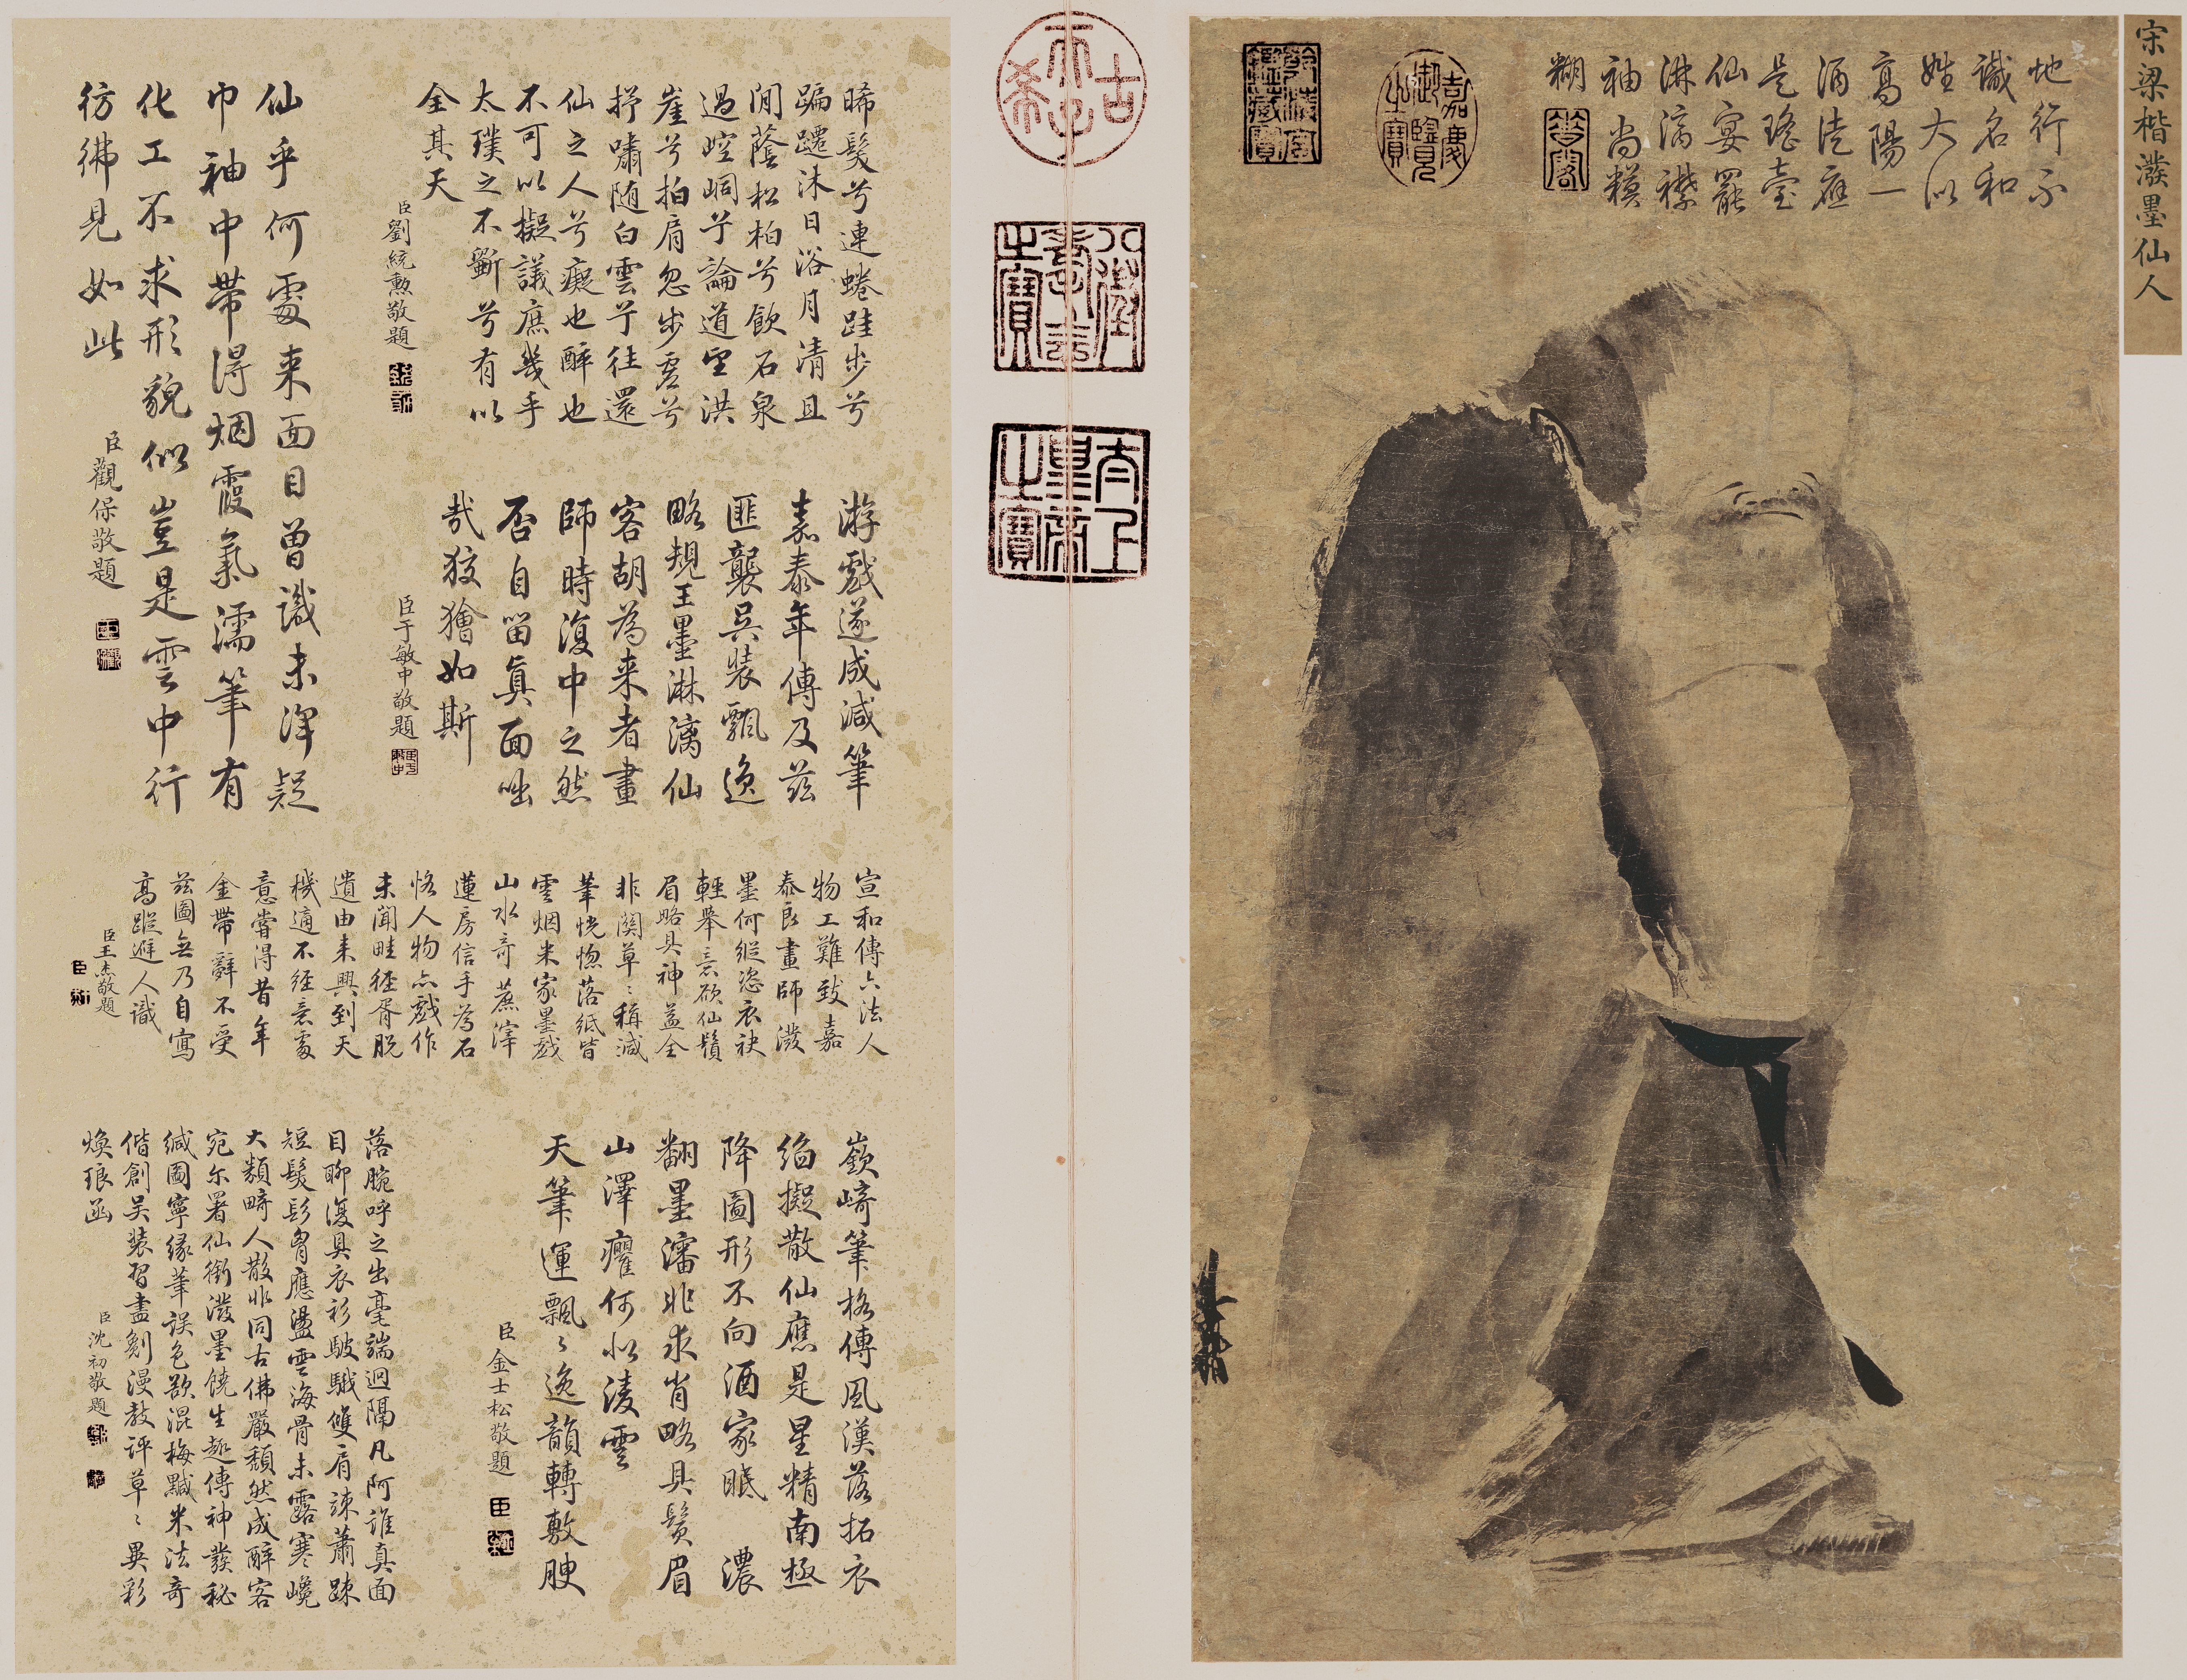 宋梁楷潑墨仙人
地行不
識名和
姓大似
高陽一
酒徒應
是瑤臺
仙宴罷
淋漓襟
袖尚模
糊
嘉慶
御覽
之寶
乾清宮
鑑藏寶
古
稀
天子
八徵
耄念
之寶
太上
皇帝
之寶
晞髮兮連蜷跬步兮
蹁躚沐日浴月清且
閒蔭松柏兮飲石泉
過崆峒兮論道望洪
崖兮拍肩忽步虛兮
抒嘯隨白雲兮往還
仙之人兮癡也醉也
不可以擬議庶幾乎
太璞之不斲兮有以
全其天
臣劉統勳敬題
游戲遂成減筆
嘉泰年傳及茲
匪襲吳裝飄逸
略規王墨淋漓仙
客胡為來者畫
師時復中之然
否自留真面咄
哉狡獪如斯
臣于敏中敬題
仙乎何處来面目曾識未渾疑
巾袖中帶得烟霞氣濡筆有
化工不求形貌似豈是雲中行
彷彿見如此
臣觀保敬題
宣和傳六法人
物工難致嘉
泰良畫師潑
墨何縱恣衣袂
輕舉意欲仙鬚
眉略具神益全
非關草〻稱減
筆恍惚落紙皆
雲烟米家墨戲
山水奇蔗滓
蓮房信手為石
恪人物亦戲作
未聞畦徑胥脫
遺由来興到天
機適不經意處
意嘗得昔年
金帶辭不受
茲圖無乃自寫
高蹤避人識
臣王杰敬題
嶔崎筆格傳風漢落拓衣
綃擬散仙應是星精南極
降圖形不向酒家眠 濃
翻墨瀋非求肖略具鬚眉
山澤癯何似淩雲
天筆運飄〻逸韻轉敷腴
臣金士松敬題
落腕呼之出毫端迥隔凡阿誰真面
目聊復具衣衫駊騀雙肩竦蕭踈
短髮髟胷應盪雲海骨未露寒巉
大類畸人散非同古佛嚴頹然成醉客
宛尔署仙銜潑墨饒生趣傳神發秘
緘圖寧緣筆誤色欲混梅黬米法奇
偕創吳裝習盡劖漫教評草〻異彩
煥琅函
臣沈初敬題